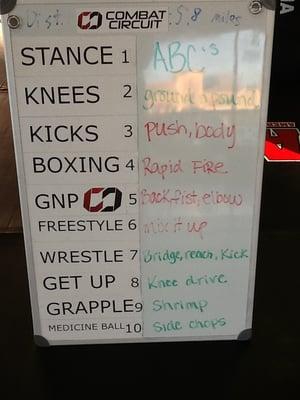 Dist. COMBAT CIRCUIT 5.8 miles
STANCE 1 ABC's
KNEES 2 ground n pound
KICKS 3 push, body
BOXING 4 Rapid Fire
GNP 5 Backfist, elbow
FREESTYLE 6 mix it up
WRESTLE 7 Bridge, reach, Kick
GET UP 8 Knee drive
GRAPPLE 9 Shrimp
MEDICINE BALL 10 Side chops